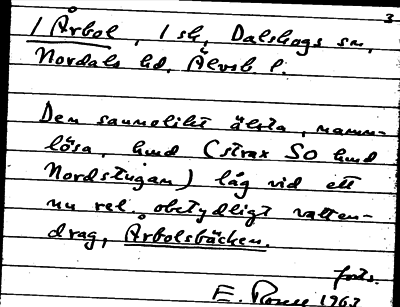 3
1 Årbol, 1 sk, Dalskogs sn,
Nordals hd, Älvsb. l.
Den sannolikt älsta, namn-
lösa, kmd (strax SO kmd
Nordstugan) låg vid ett
nu rel. obetydligt vatten-
drag, Årbolsbäcken.
forts.
E. 1963